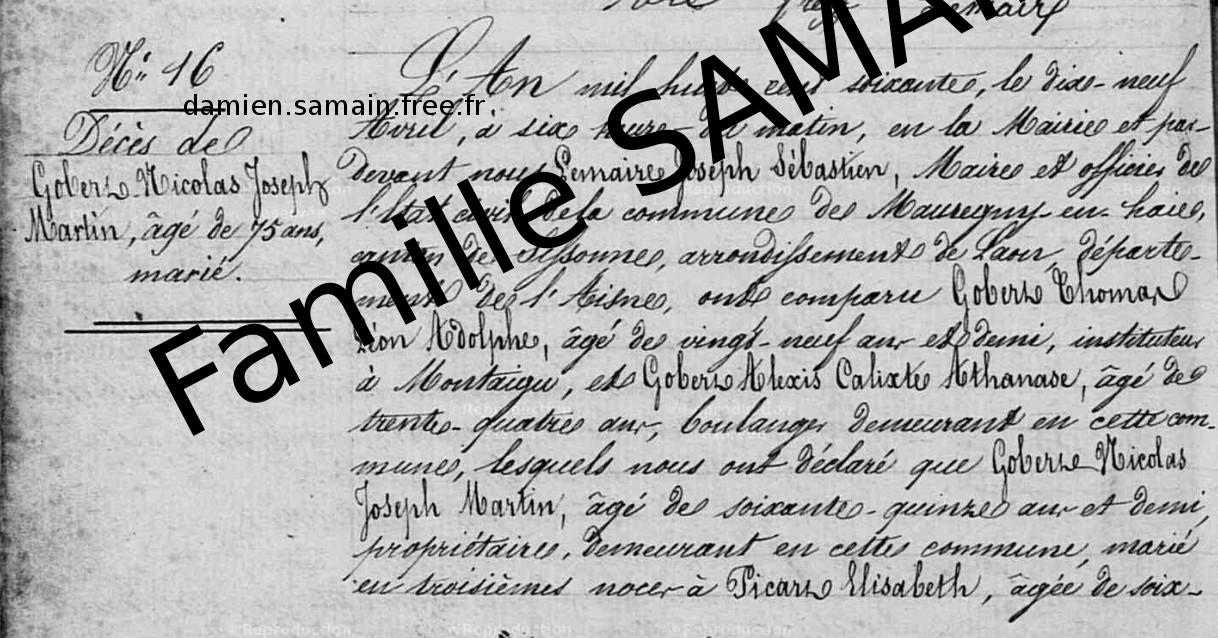 Maire
N° 16
damien.samain.free.fr
Décès de
Gobert Nicolas Joseph
Martin, âgé de 75 ans,
marié.
Famille SAMAI
L'An mil huit cent soixante, le dix-neuf
Avril, à six heures du matin, en la Mairie et par-
devant nous Lemaire Joseph Sébastien, Maire et officier de
l'état civil de la commune de Mauregny-en-haie,
canton de Sissonne, arrondissement de Laon, départe-
ment de l'Aisne, ont comparu Gobert Thomas
Léon Adolphe, âgé de vingt-neuf ans et demi, instituteur
à Montaigu, et Gobert Alexis Calixte Athanase, âgé de
trente-quatre ans, boulanger demeurant en cette com-
mune, lesquels nous ont déclaré que Gobert Nicolas
Joseph Martin, âgé de soixante-quinze ans et demi,
propriétaire, demeurant en cette commune, marié
en troisièmes noces à Picart Elisabeth, âgée de soix-